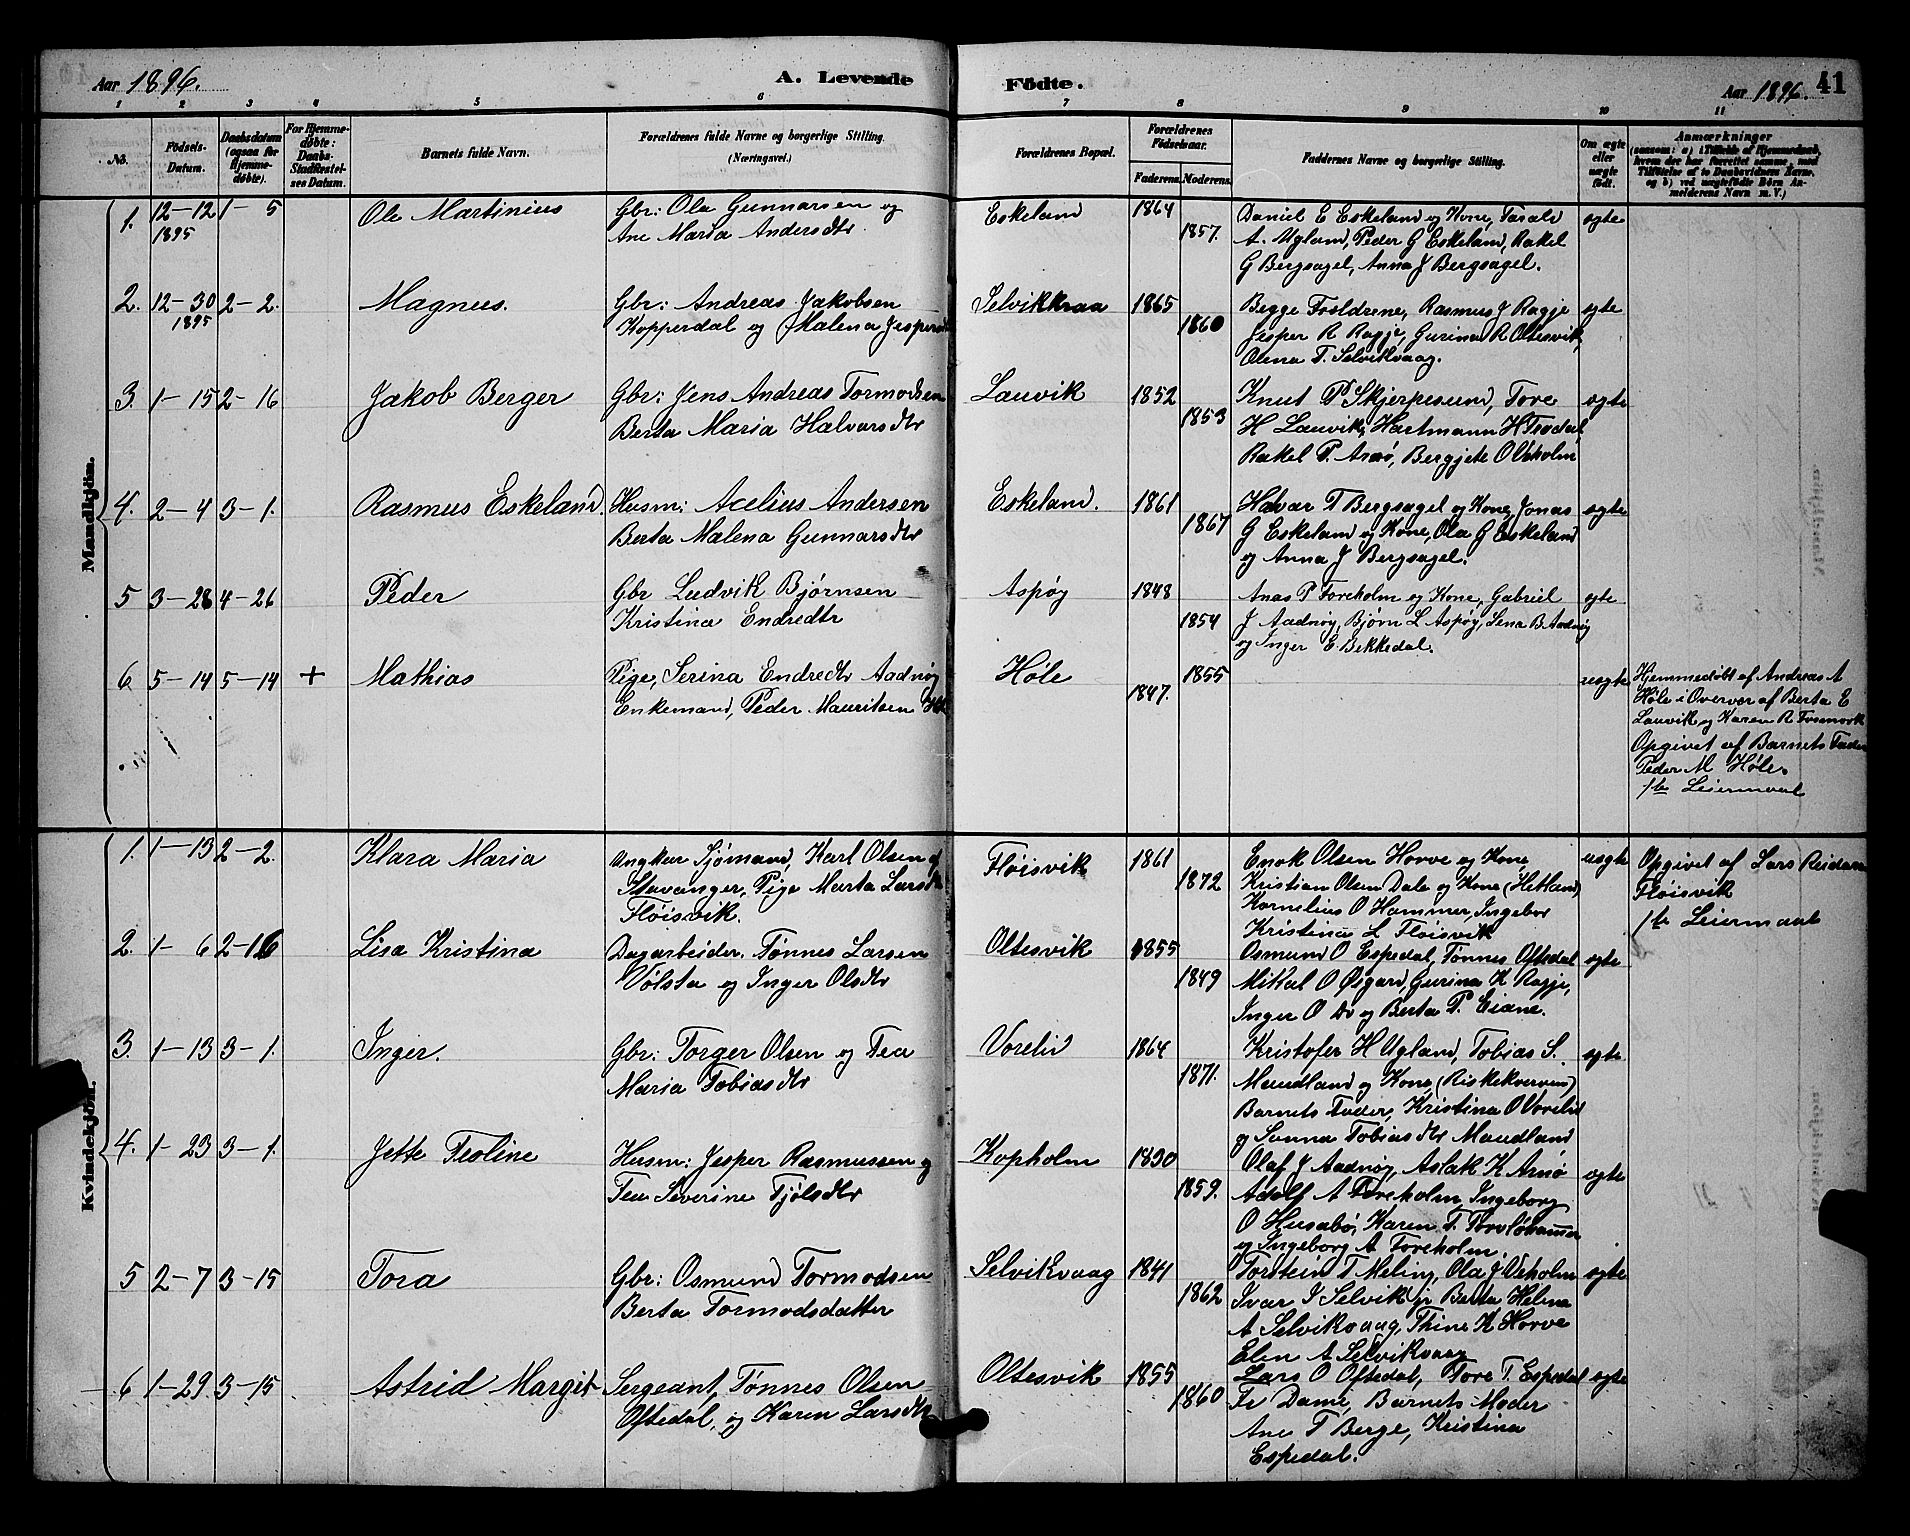 Aar 1896.
A. Levende
Födte.
Aar 1896.
41
1 2 3 4 5 6 7 8 9 10 11
No.
Födsels-Datum.
Daabsdatum (ogsaa for Hjemmedöbte).
For Hjemmedöbte: Daabs-Stadfæstelses Datum.
Barnets fulde Navn.
Forældrenes fulde Navne og borgerlige Stilling.
(Næringsvei.)
Forældrenes Bopæl.
Forældrenes Födselsaar.
Faderens. Moderens.
Faddernes Navne og borgerlige Stilling.
Om ægte eller uægte födt.
Anmærkninger
(saasom: a) i Tilfælde af Hjemmedaab, hvem der har forrettet samme, med Tilföielse af to Daabsvidners Navne, og b) ved uægtefödte Börn Anmelderens Navn m. V.)
Mandkjön.
1. 12-12 1-5 Ole Martinius Gbr: Ola Gunnarsen og Eskeland 1864 Daniel E Eskeland og Kone, Tarald ægte
1895 Ane Maria Andersdtr 1857. A. Ugland, Peder G Eskeland, Rakel
G Bergsagel, Anna J Bergsagel.
2. 12-30 2-2. Magnus. Gbr: Andreas Jakobsen Selvikkraa 1865 Begge Foreldrene, Rasmus J Ragje ægte
1895 Kopperdal og Malena Jespersd 1860 Jesper R Ragje, Gurina R Oltesvik,
Olena T. Selvikvaag.
3. 1-15 2-16 Jakob Berger Gbr: Jens Andreas Tormodsen Lauvik 1852 Knut P Skjerpesund, Tore ægte
Berta Maria Halvarsdtr 1853 H Lauvik, Hartmann H Frodal
Rakel P. Arnø, Bergjete O Veholm
4. 2-4 3-1. Rasmus Eskeland. Husm: Acelius Andersen Eskeland. 1861 Halvar T Bergsagel og Kone, Jonas ægte
Berta Malena Gunnarsdtr 1867 G Eskeland og Kone, Ola G Eskeland
og Anna J Bergsagel.
5 3-28 4-26 Peder Gbr Ludvik Bjørnsen Aspøy 1848 Anas P Foreholm og Kone, Gabriel ægte
Kristina Endredtr 1854 J Aadnøy, Bjørn L Aspøy, Lena B Aadnøy
og Inger E Bekkedal.
6 5-14 5-14 + Mathias Pige, Serina Endredtr Aadnøy Høle 1855 uægte Hjemmedøbt af Andreas A
Enkemand, Peder Mauritsen 1847. Høle i Overvær af Berta E
Lauvik og Karen R
Opgivet af Barnets Fader
Peder M Høle.
1ste Leiermaal
Kvindekjön.
1. 1-13 2-2. Klara Maria Ungkar Sjømand, Karl Olsen af Fløisvik 1861 Enok Olsen Horve og Kone uægte Opgivet af Lars Reidarsen
Stavanger, Pige Marta Larsdtr 1872 Kristian Olsen Dale og Kone (Hetland) Fløisvik
Fløisvik. Kornelius O Hammer, Ingebor 1ste Leiermaal
Kristina L Fløisvik
2. 1-6 2-16 Lisa Kristina Dagarbeider. Tønnes Larsen Oltesvik 1855 Osmund O Espedal, Tønnes Oftedal ægte
Vølsta og Inger Olsdtr 1849 Mikal O Øsgard, Gurina K Ragje,
Inger O Do og Berta P. Eiane.
3. 1-13 3-1. Inger. Gbr: Torger Olsen og Tea Vorelid 1864 Kristofer H Ugland, Tobias S. ægte
Maria Tobiasdtr 1871. Maudland og Kone (Riskekvernen)
Barnets Fader, Kristina O Vorelid
og Sanna Tobiasdtr Maudland
4. 1-23 3-1. Jette Teoline Husm: Jesper Rasmussen og Kopholm 1830 Olaf J Aadnøy, Aslak K Arnø ægte
Tea Severine Tjølsdtr 1859. Adolf A Foreholm, Ingeborg
O Husabø, Karen T.
og Ingeborg A Foreholm.
5 2-7 3-15 Tora Gbr: Osmund Tormodsen Selvikvaag 1841 Torstein T Meling, Ola J Veholm ægte
Berta Tormodsdatter 1862 Ivar I Selvik jr Berta Helena
A Selvikvaag, Thine K Horve
Elen A Selvikvaag
6 1-29 3-15 Astrid Margit Sergeant, Tønnes Olsen Oltesvik 1855 Lars O Oftedal, Tore T. Espedal ægte
Oftedal, og Karen Larsdtr 1860 Fr Dame, Barnets Moder
Ane T Berge, Kristina
Espedal.